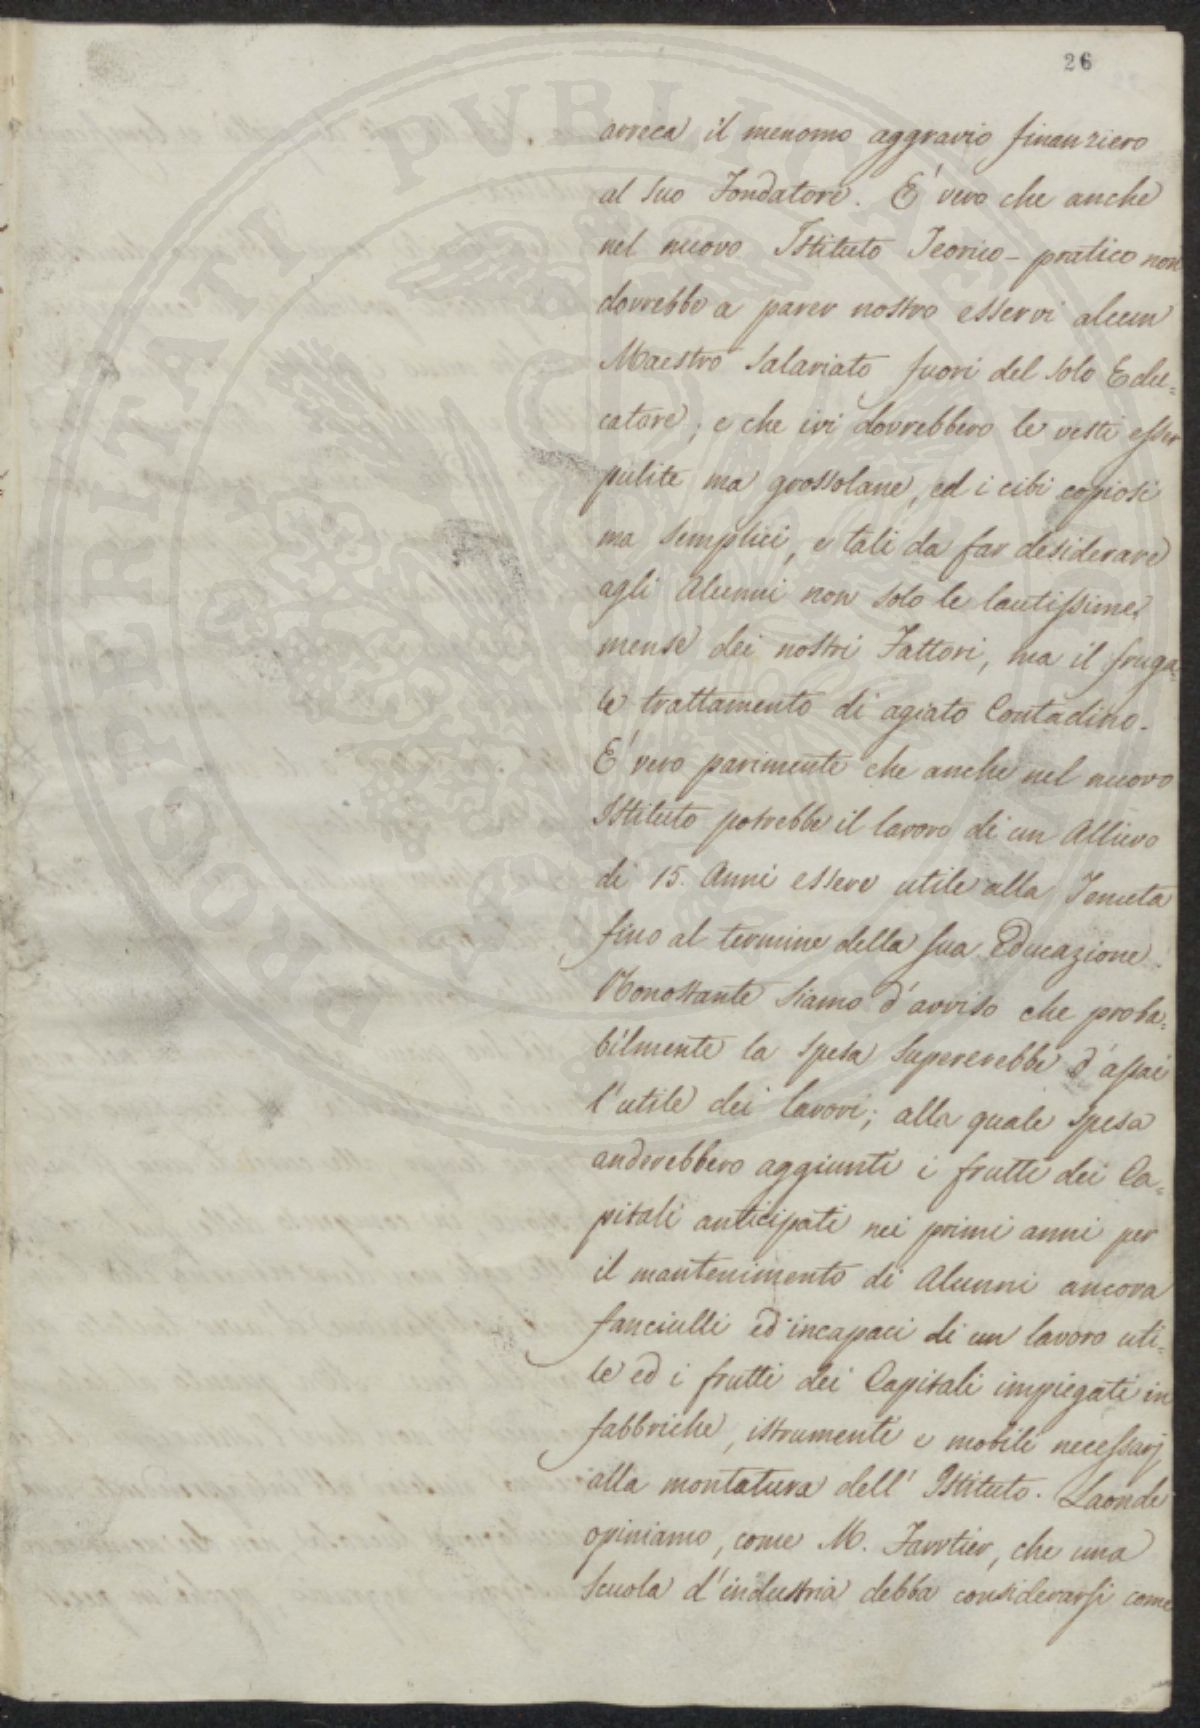 26
arreca il menomo aggravio finanziero
al suo Fondatore. E' vero che anche
nel nuovo Istituto Teorico-pratico non
dovrebbe a parer nostro esservi alcun
Maestro salariato fuori del solo Edu=
catore; e che ivi dovrebbero le vesti esser
pulite ma grossolane, ed i cibi copiosi
ma semplici, e tali da far desiderare
agli Alunni non solo le lautissime
mense dei nostri Fattori, ma il fruga=
le trattamento di agiato Contadino.
E' vero parimente che anche nel nuovo
Istituto potrebbe il lavoro di un Allievo
di 15. Anni essere utile alla Tenuta
fino al termine della sua Educazione.
Nonostante siamo d'avviso che proba=
bilmente la spesa supererebbe d'assai
l'utile dei lavori; alla quale spesa
anderebbero aggiunti i frutti dei Ca=
pitali anticipati nei primi anni per
il mantenimento di Alunni ancora
fanciulli ed incapaci di un lavoro uti=
le ed i frutti dei Capitali impiegati in
fabbriche, istrumenti e mobili necessarj
alla montatura dell' Istituto. Laonde
opiniamo, come M. , che una
scuola d'industria debba considerarsi come
PROSPERITATI PUBLICAE